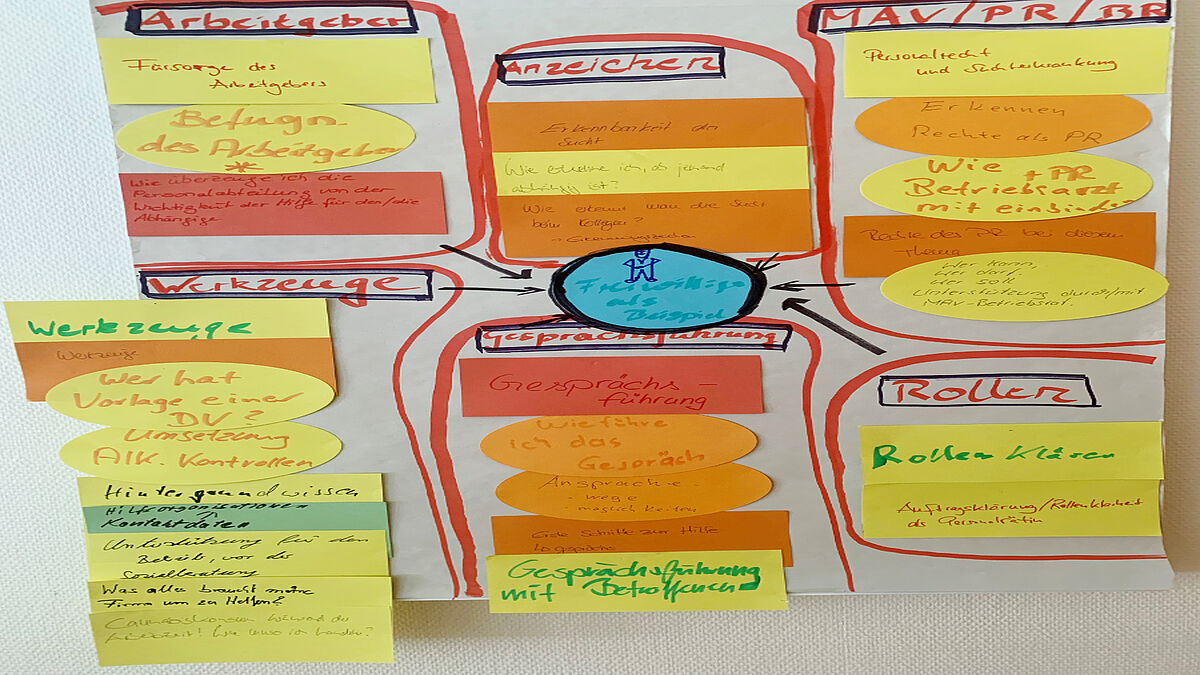 Arbeitgeber
Fürsorge des
Arbeitgebers
Befugn.
des Arbeitgeber
*
Wie überzeuge ich die
Personalabteilung von der
Wichtigkeit der Hilfe für den/die
Abhängige
Anzeichen
Erkennbarkeit der
Sucht
Wie erkenne ich, ob jemand
abhängig ist?
Wie erkennt man die Sucht
beim Kollegen?
MAV/PR/BR
Personalrecht
und Suchterkrankung
Erkennen
Rechte als PR
Wie + PR
Betriebsarzt
mit einbinde?
Rechte des PR bei diesem
Thema
Wer kann,
Wer darf,
Wer soll
Unterstützung durch/mit
MAV-Betriebsrat.
Freiwillige
als
Beispiel
Werkzeuge
Werkzeuge
Werkzeuge
Wer hat
Vorlage einer
DV?
Umsetzung
Alk. Kontrollen
Hintergrundwissen
Hilfsorganisationen
Kontaktdaten
Unterstützung für den
Betrieb, vor der
Sozialberatung
Was alles braucht meine
Firma um zu Helfen?
Cannabiskonsum während der
Arbeitszeit! Wie muss ich handeln?
Gesprächsführung
Gesprächs-
führung
Wie führe
ich das
Gespräch
Ansprache
- wege
- möglichkeiten
Erste Schritte zur Hilfe
Gesprächsführung
mit Betroffenen
Rollen
Rollen klären
Auftragsklärung/Rollenklarheit
als Personalrätin